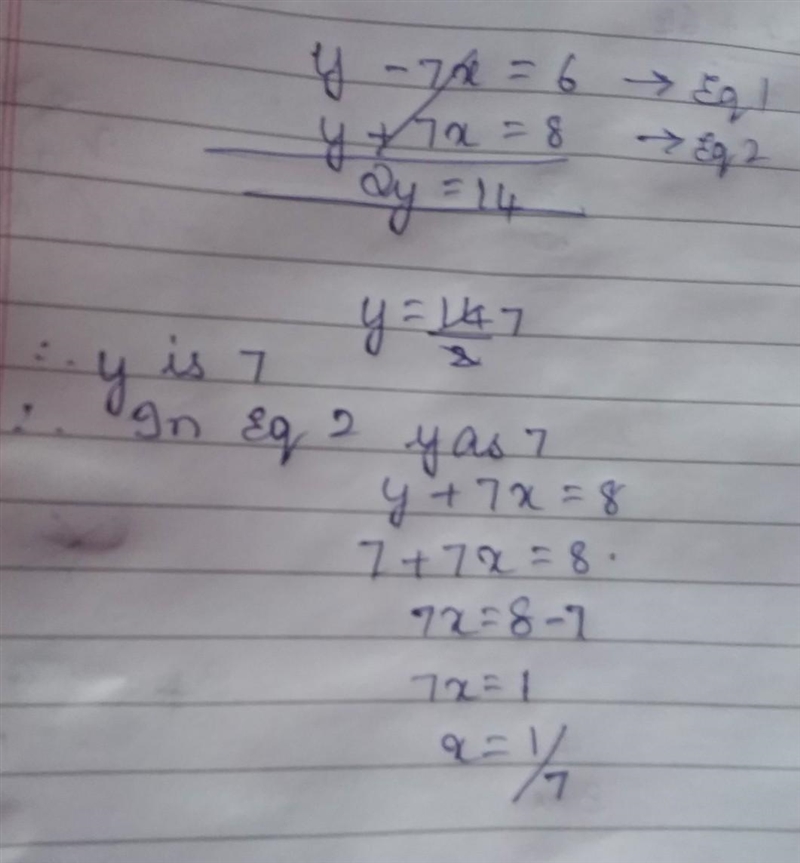 y - 7x = 6 → Eq 1
y + 7x = 8 → Eq 2
2y = 14
y = 14/2 7
∴ y is 7
∴ In Eq 2 y as 7
y + 7x = 8
7 + 7x = 8.
7x = 8 - 7
7x = 1
x = 1/7